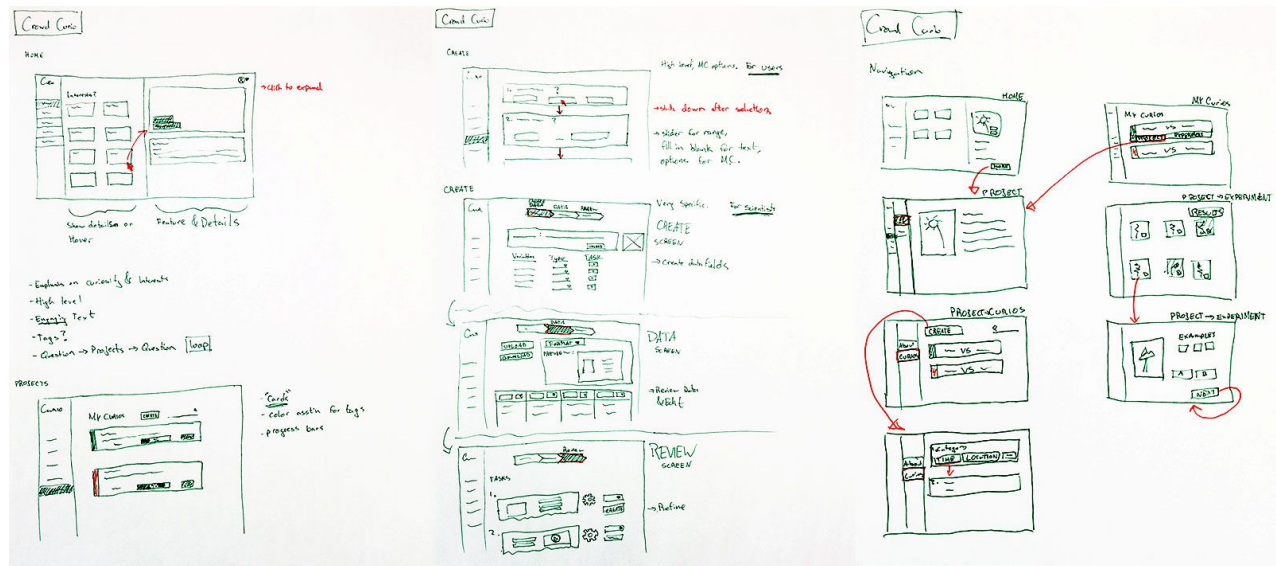 Crowd Curio
HOME
Curio
Interests?
→ click to expand
Show details on
Hover
Feature & Details
- Emphasis on curiosity & Interests
- High level
- Engaging Text
- Tags?
- Question → Projects → Question loop
PROJECTS
Curio
My Curios
CREATE
- "Cards"
- color asst'n for tags
- progress bars
Crowd Curio
CREATE
High level, MC options. For users
1.
?
2.
?
→ slide down after selection,
→ slider for range,
fill in blank for text,
options for MC.
CREATE
Very specific. For scientists
CREATE
SCREEN
→ Create data fields
DATA
Variables
Type
TASK
DATA
UPLOAD
DOWNLOAD
DATA
SCREEN
→ Review Data
& Edit
Review
REVIEW
SCREEN
TASKS
1.
CREATE
2.
→ Refine
Crowd Curio
Navigation
HOME
My Curios
MY CURIOS
VS
PROJECT
PROGRESS
VS
PROJECT
PROJECT → EXPERIMENT
RESULTS
PROJECT → CURIOS
CREATE
About
CURIOS
VS
VS
PROJECT → EXPERIMENT
EXAMPLES
A
B
NEXT
About
Curios
Category
TIME
LOCATION
2.